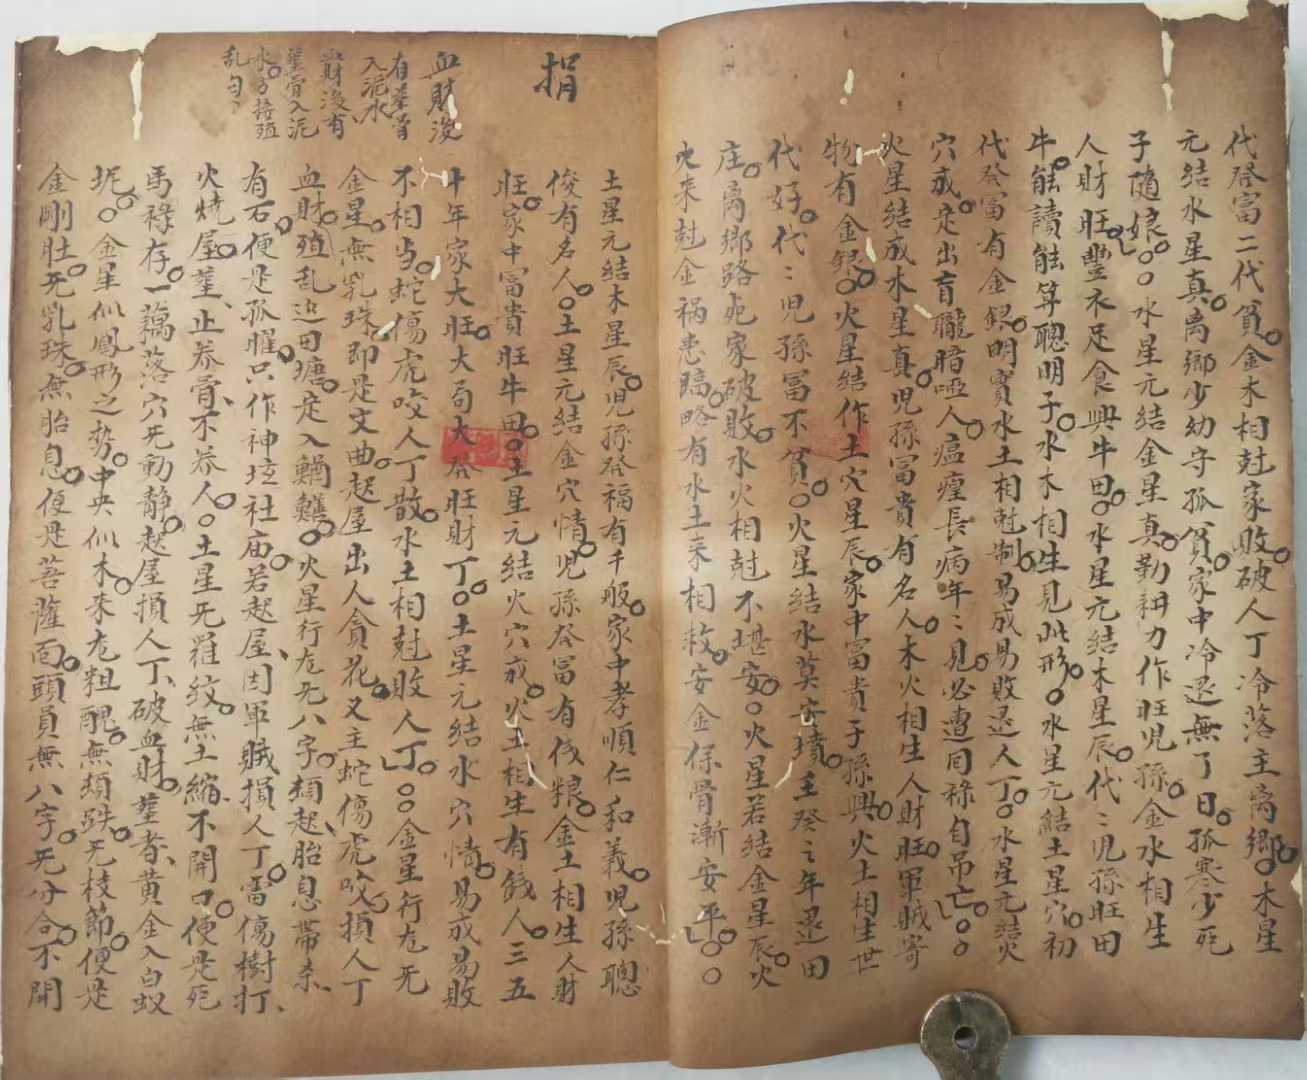 代發富二代貧金木相尅家敗破人丁冷落主离鄉木星
元結水星真离鄉少幼守孤貧家中冷退無了日孤寒少死
子隨娘水星元結金星真勤耕力作旺児孫金水相生
人財旺豐衣足食興牛田水星元結木星辰代〻児孫旺田
牛能讀能算聰明子水木相生見此形水星元結土星穴初
代發富有金銀明實水土相尅制易成易敗退人丁水星元結火
穴成定出盲聾暗啞人瘟瘟長病年〻見必遭回祿自吊亡
火星結成水星真児孫冨貴有名人木火相生人財旺軍賊寄
物有金銀火星結作土穴星辰家中富貴子孫興火土相生世
代好代〻児孫冨不貧火星結水莫安墳壬癸之年退田
庄离鄉路死家破敗水火相尅不堪安火星若結金星辰火
火來尅金禍患臨略有水土來相救安金保骨漸安平
捐
血財没
有葬骨
入泥水
財没有
葬骨入泥
水方接殖
乱
土星元結木星辰児孫發福有千般家中孝順仁和義児孫聰
俊有名人土星元結金穴情児孫發冨有伐粮金土相生人財
旺家中冨貴旺牛田土星元結火穴成火土相生有餞人三五
十年家大旺大局大發旺財丁土星元結水穴情易成易敗
不相当蛇傷虎咬人丁散水土相尅敗人丁金星行龙无
金星無乳珠即是文曲起屋出人貪花又主蛇傷虎咬損人丁
血財殖乱边田塘定入鰗鰍火星行龙无八字頦起胎息帶杀
有石便是孤曜只作神坛社庙若起屋因軍賊損人丁雷傷樹打
火燒屋葬止养骨不养人土星无羅紋無土縮不開口便是死
馬祿存一藕落穴无動靜起屋損人丁破血財葬者黃金入白蚁
坭金星似鳳形之勢中央似木來龙粗醜無頦跌无枝節便是
金剛肚无乳珠無胎息便是菩薩面頭員無八字无分合不開